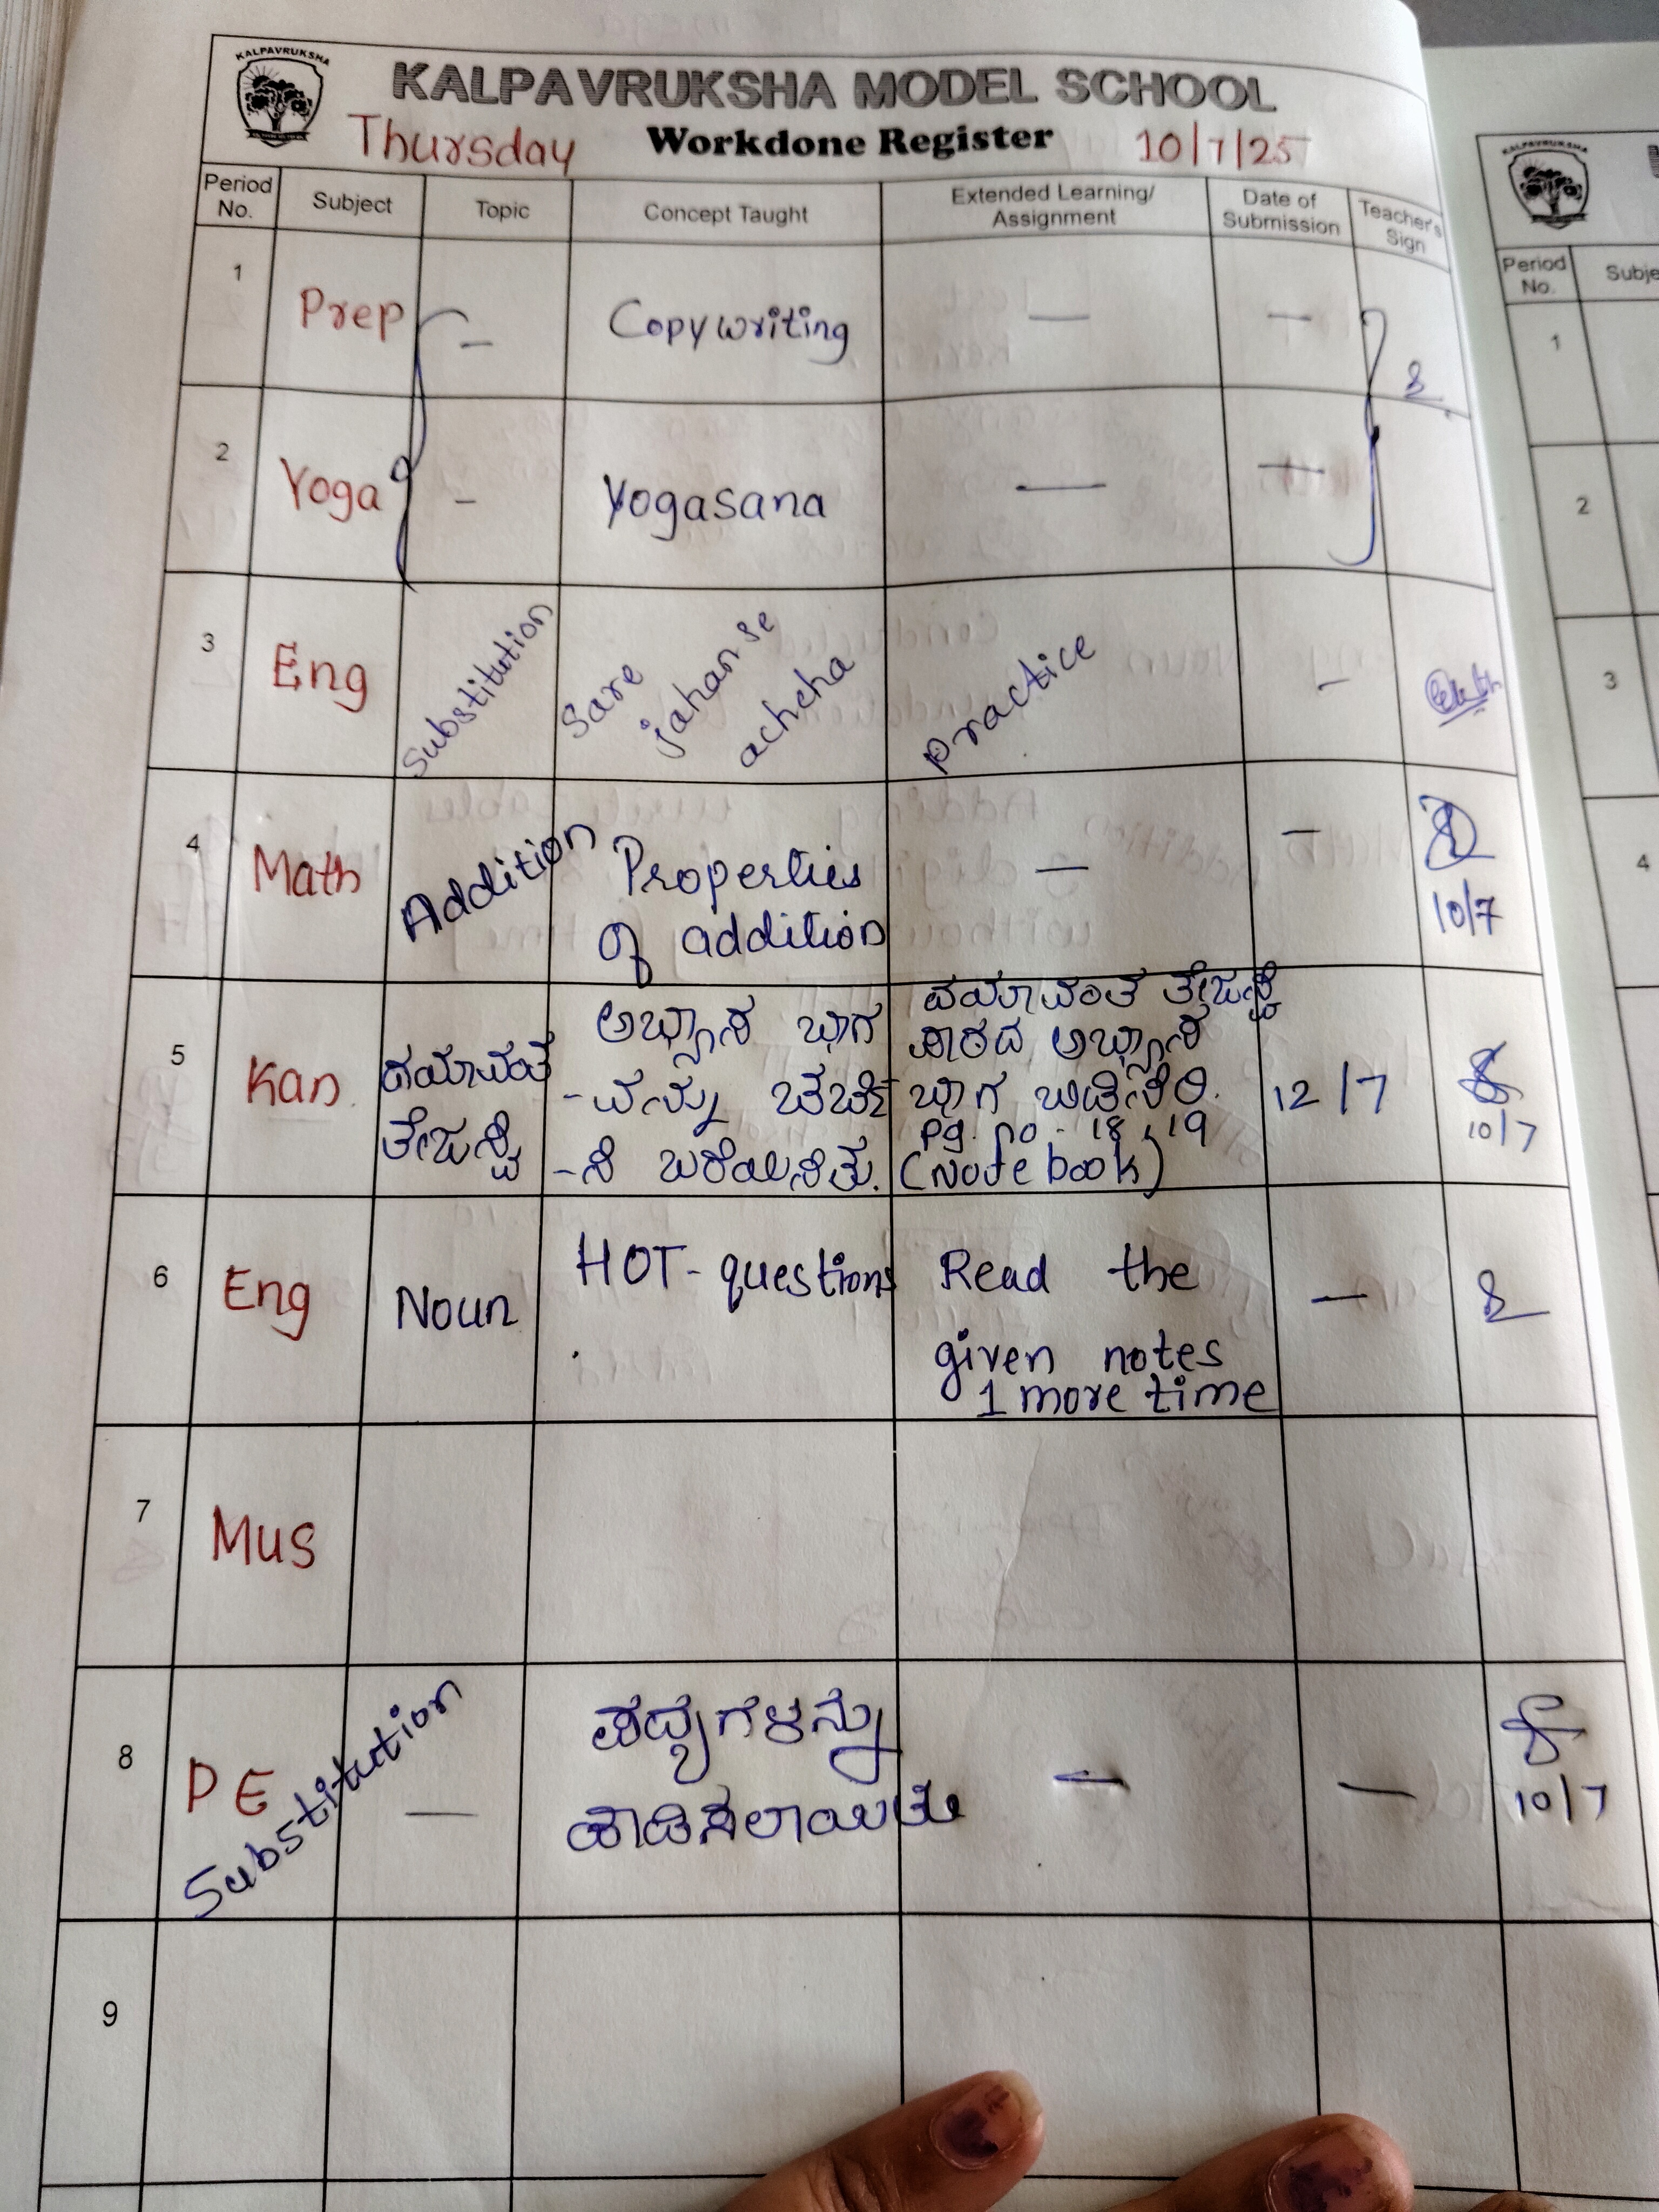 KALPAVRUKSHA
KALPAVRUKSHA MODEL SCHOOL
Thursday Workdone Register 10/7/25
Period No. Subject Topic Concept Taught Extended Learning/ Assignment Date of Submission Teacher's Sign
1 Prep - Copywriting — —
2 Yoga - Yogasana — —
3 Eng Substitution Sare jahan se achcha practice -
4 Math Addition Properties of addition — — 10/7
5 Kan ದಯಾವಂತ ತೇಜಸ್ವಿ ಅಭ್ಯಾಸ ಭಾಗ -ವನ್ನು ಚರ್ಚಿ -ಸಿ ಬರೆಯಿಸಿತು. ದಯಾವಂತ ತೇಜಸ್ವಿ ಪಾಠದ ಅಭ್ಯಾಸ ಭಾಗ ಬಿಡಿಸಿರಿ. pg. no - 18, 19 (Note book) 12/7 10/7
6 Eng Noun HOT-questions Read the given notes 1 more time —
7 Mus
8 PE Substitution — ಪದ್ಯಗಳನ್ನು ಹಾಡಿಸಲಾಯಿತು — — 10/7
9
KALPAVRUKSHA
Period No. Subje
1
2
3
4